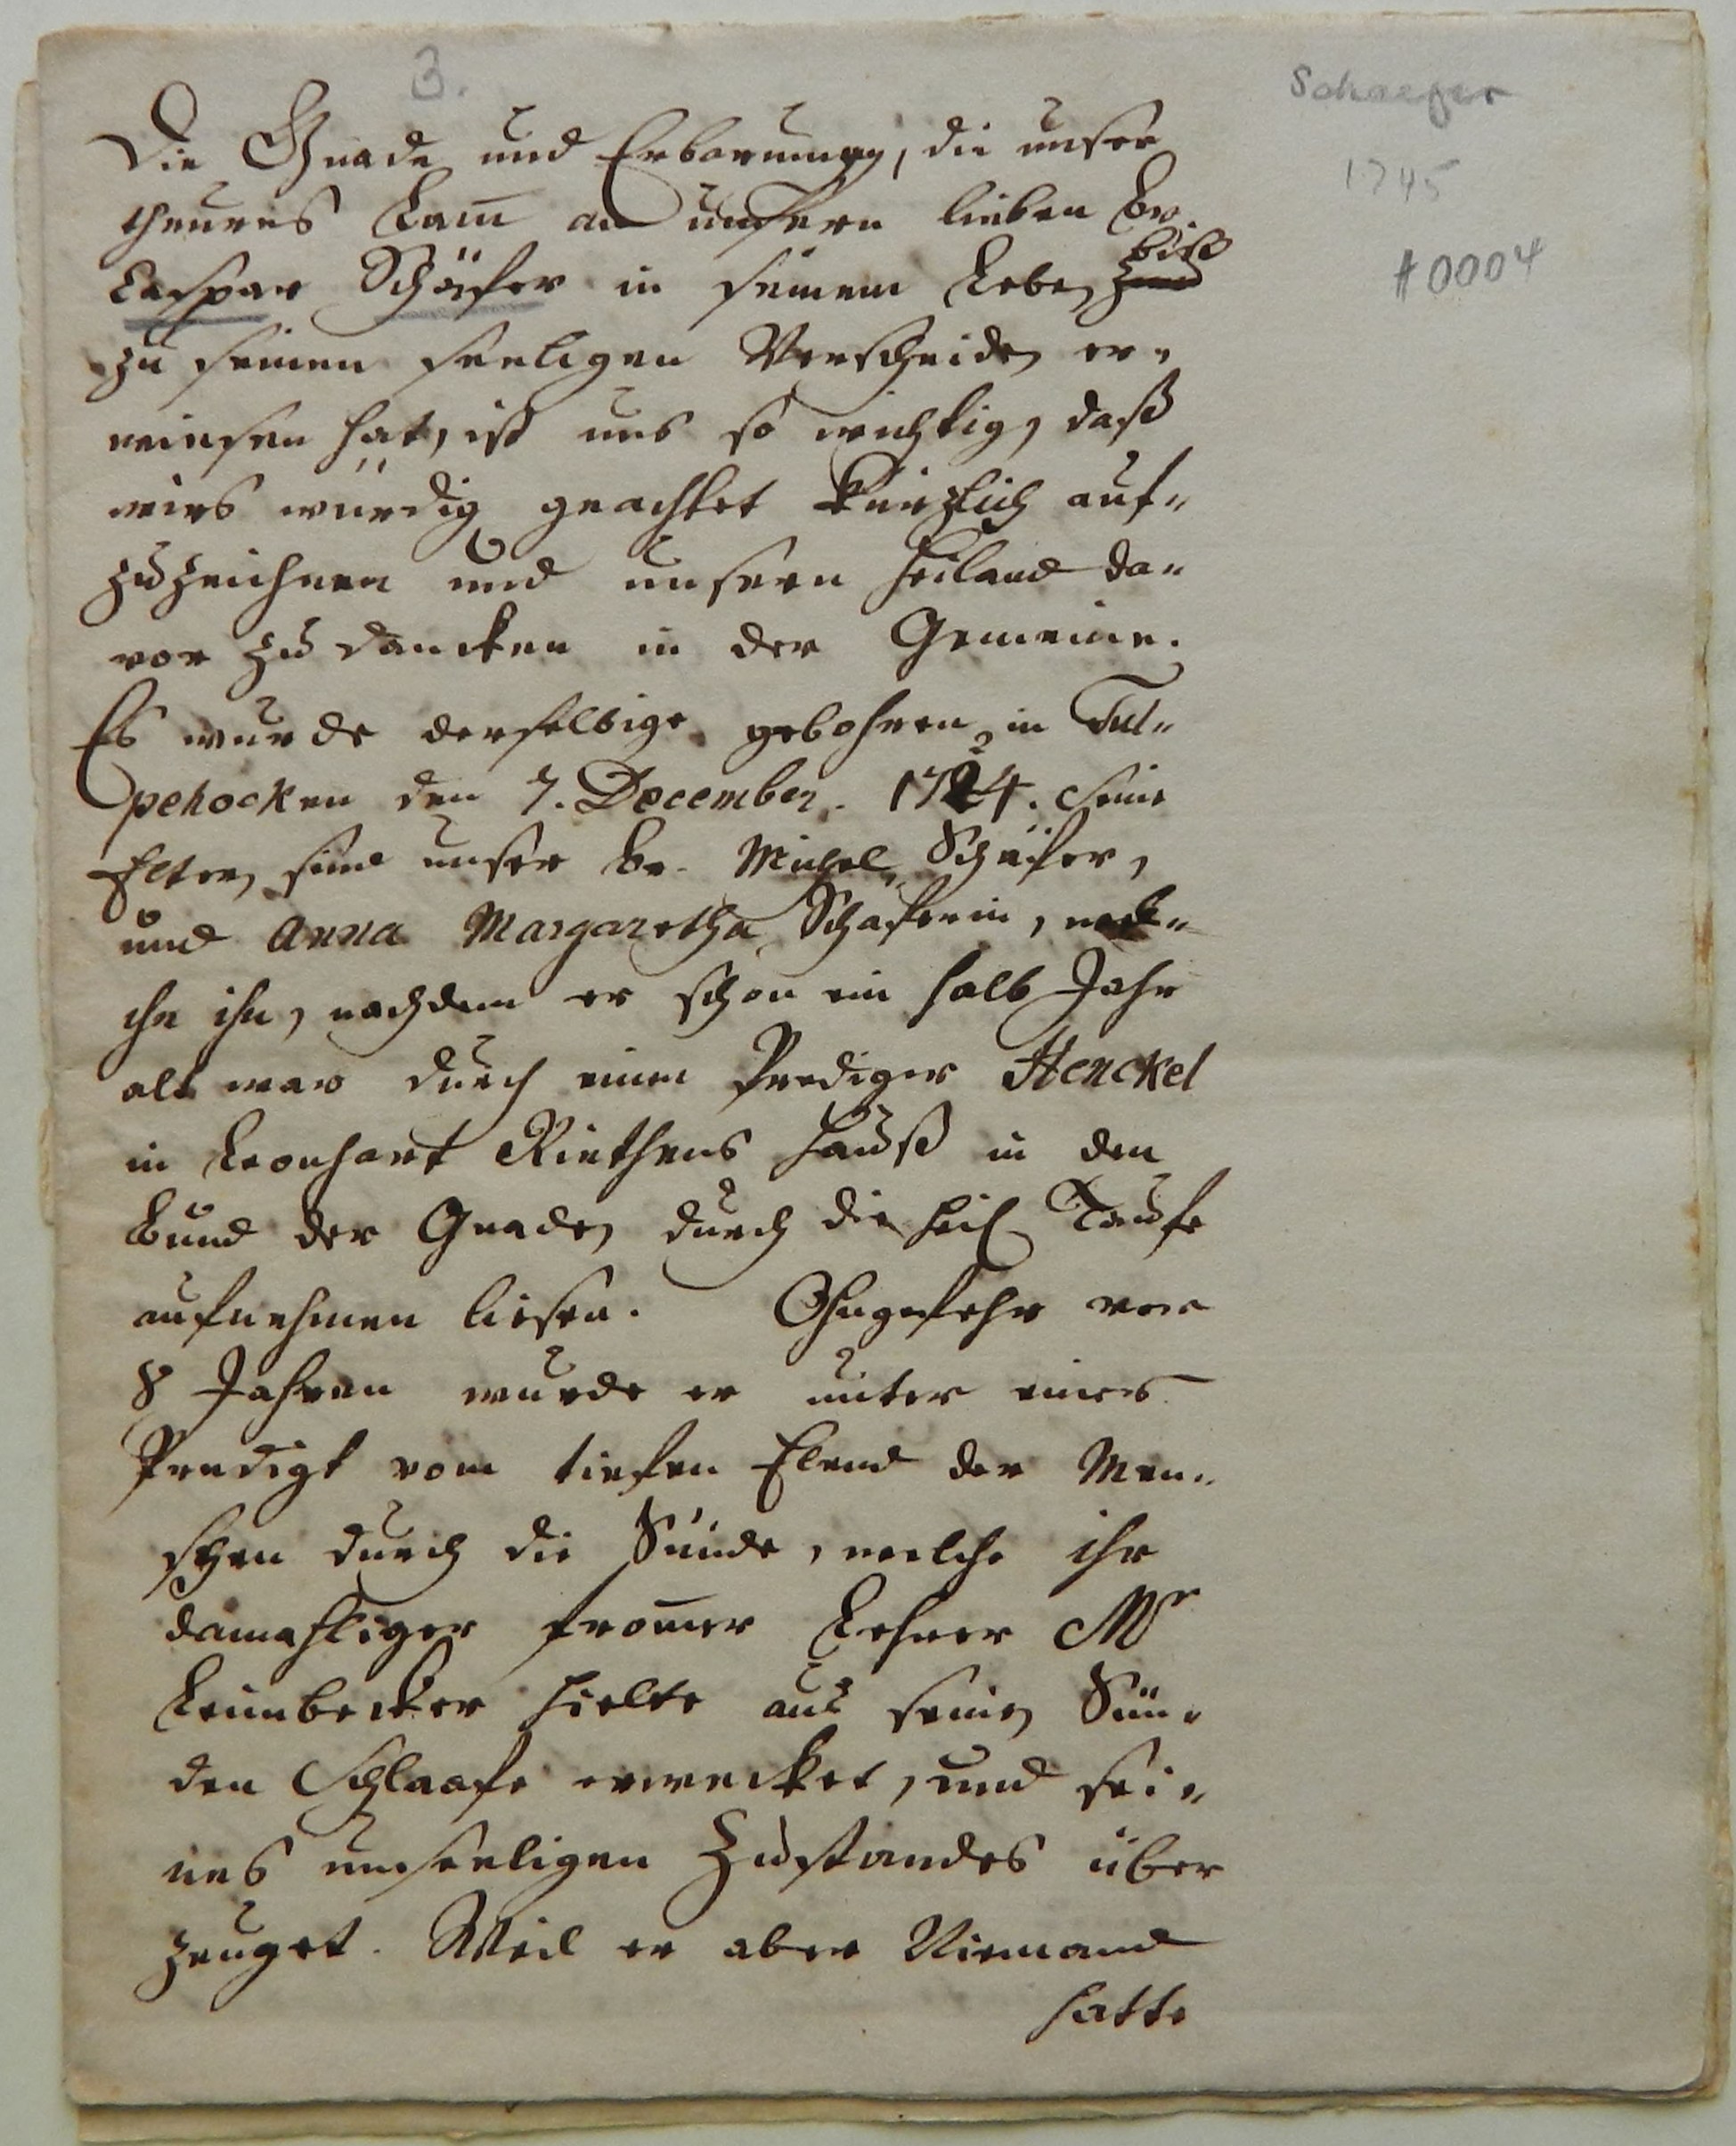 3.
Schaefer
1745
#0004
Die Gnade und Erbarmung, die unser
theures Lam̅ an unsern lieben Br.
Caspar Schäfer in seinem Leben biß
zu seinen seeligen Verscheiden er-
wiesen hat, ist uns so wichtig, daß
wirs würdig geachtet kürzlich auf-
zuzeichnen und unsern Heiland da-
vor zu dancken in der Gemeine.
Es wurde derselbige gebohren in Tul-
pehocken den 7. December. 1724. Seine
Eltern sind unser Br. Michel Schäfer,
und Anna Margaretha Schäferin, wel-
che ihn, nachdem er schon ein halb Jahr
alt war durch einen Prediger Henckel
in Leonhart Riethens Hauß in den
Bund der Gnaden durch die heil Taufe
aufnehmen liesen. Ohngefehr vor
8 Jahren wurde er unter einer
Predigt vom tiefen Elend der Men-
schen durch die Sünde, welche ihr
damahliger from̅er Lehrer Mr
Leimbecker hielte aus seinen Sün-
den Schlaafe erwecket, und sei-
nes unseeligen Zustandes über
zeuget. Weil er aber Niemand
hatte